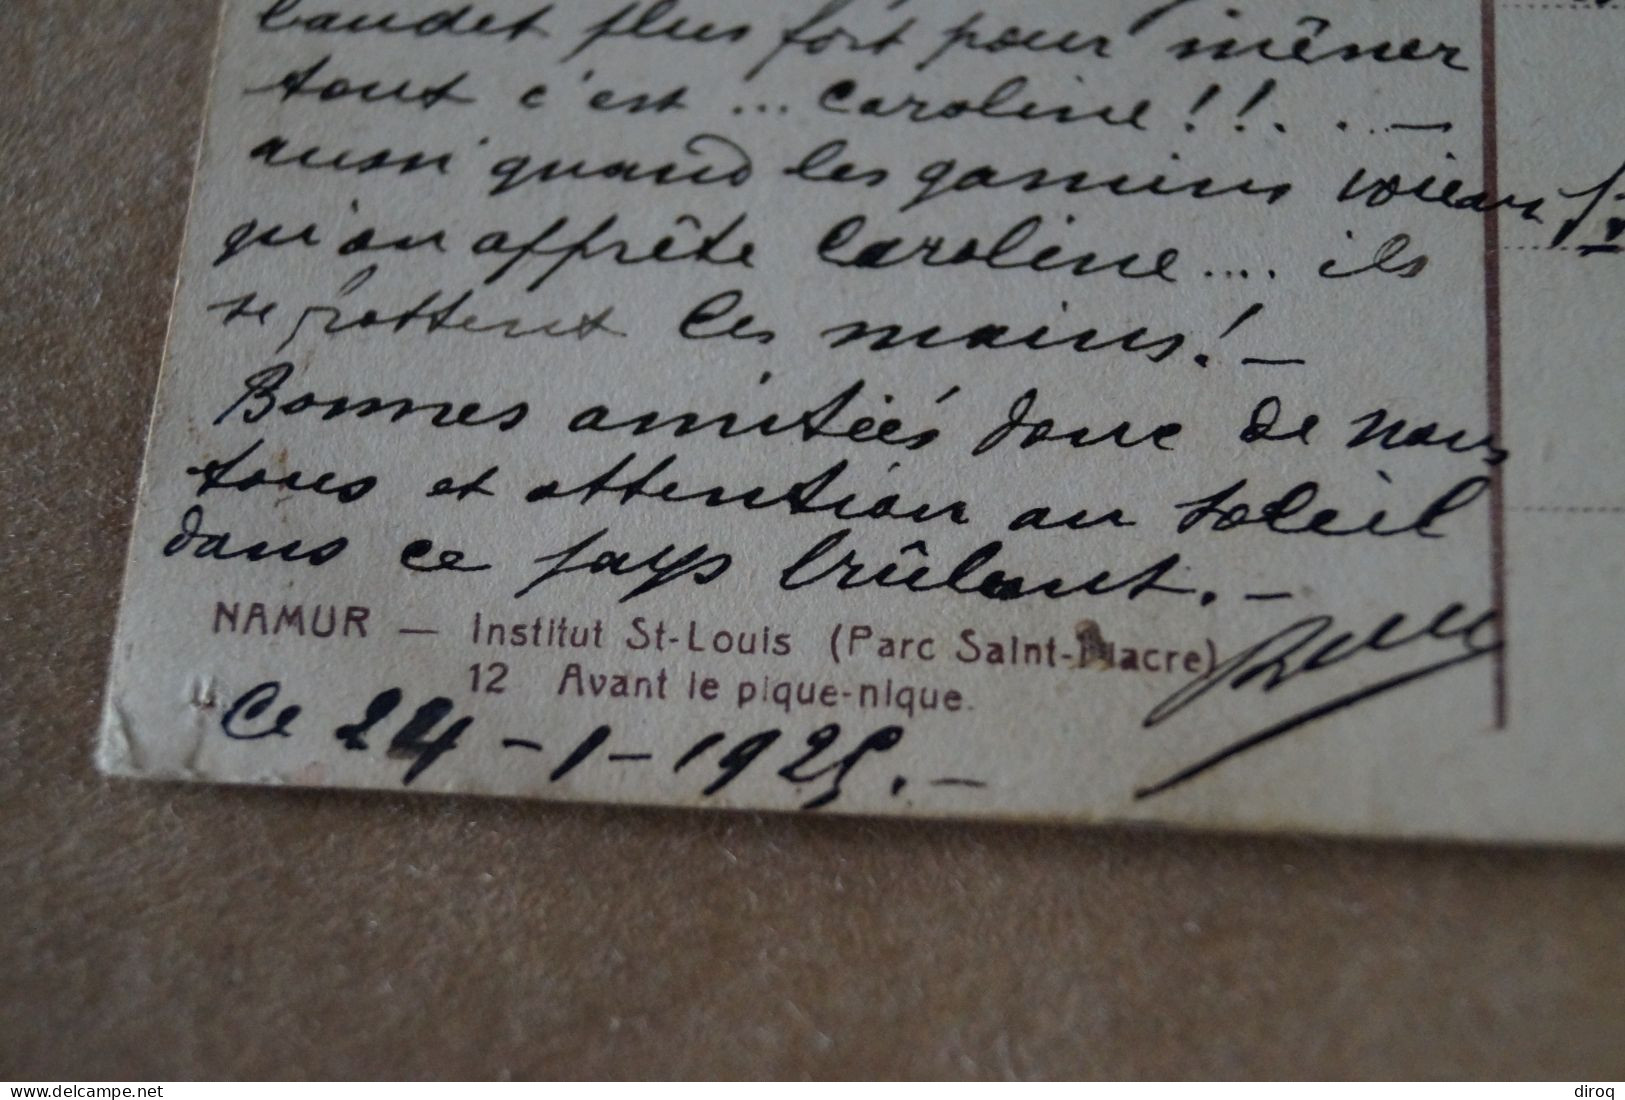 baudet plus fort pour mêner
tout c'est ... Caroline!! . . . —
aussi quand les gamins voient
qu'on apprête Caroline .... ils
se frottent les mains! —
Bonnes amitiés donc de nous
tous et attention au soleil
dans ce pays brûlant. —
NAMUR — Institut St-Louis (Parc Saint-Fiacre)
12 Avant le pique-nique.
Ce 24 - 1 - 1925. —
www.delcampe.net
diroq